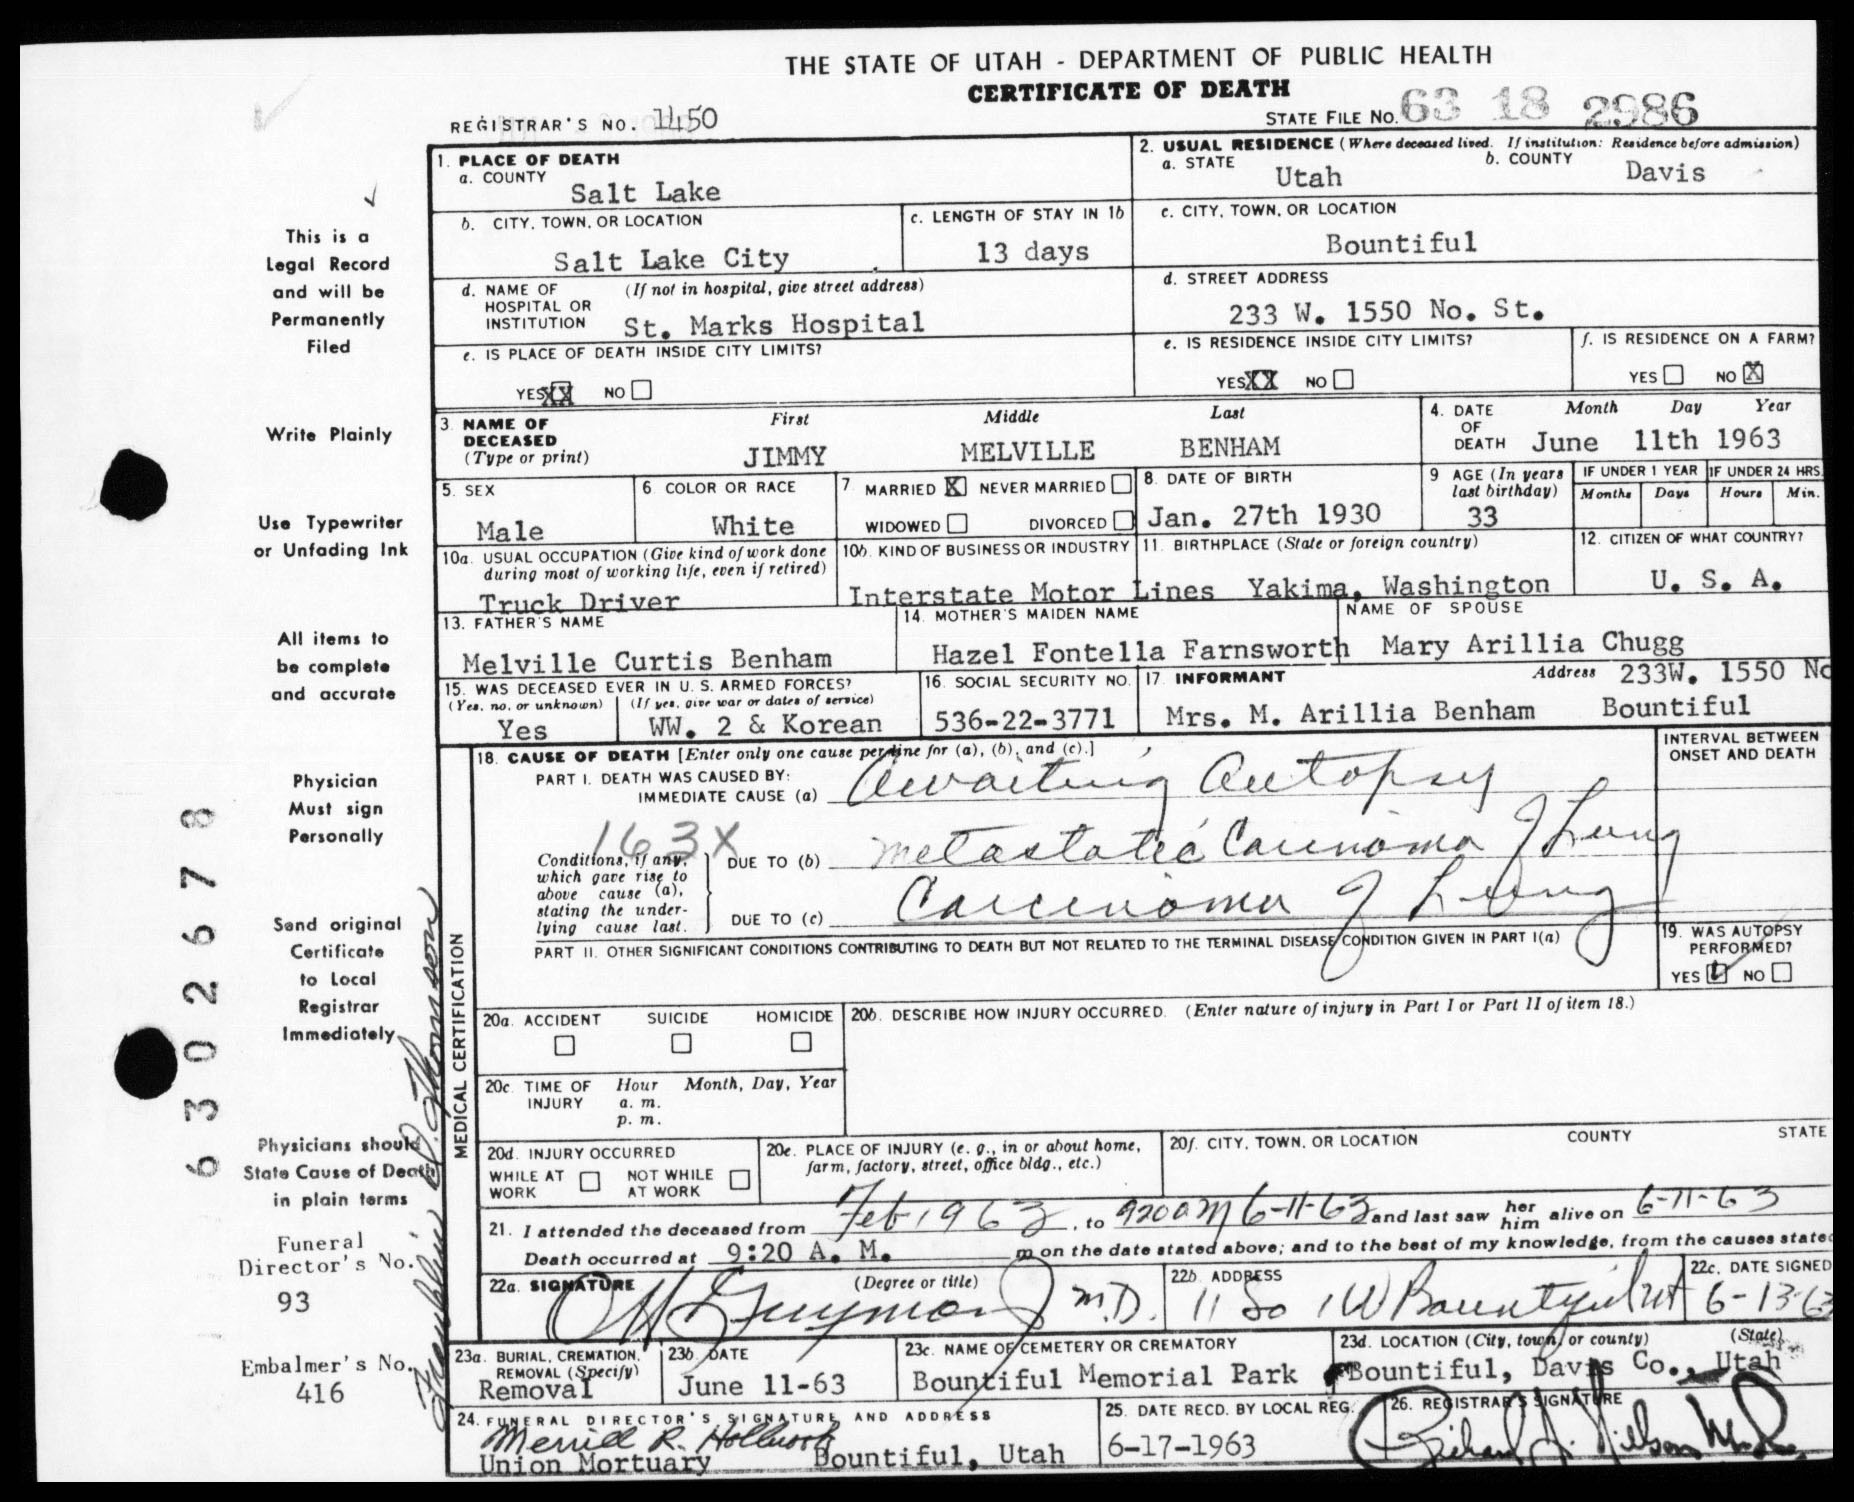 THE STATE OF UTAH - DEPARTMENT OF PUBLIC HEALTH
CERTIFICATE OF DEATH
REGISTRAR'S NO. 1450
STATE FILE NO. 63 18 2986
1. PLACE OF DEATH
a. COUNTY
Salt Lake
2. USUAL RESIDENCE (Where deceased lived. If institution: Residence before admission)
a. STATE
Utah
b. COUNTY
Davis
b. CITY, TOWN, OR LOCATION
Salt Lake City
c. LENGTH OF STAY IN 1b
13 days
c. CITY, TOWN, OR LOCATION
Bountiful
d. NAME OF HOSPITAL OR INSTITUTION
(If not in hospital, give street address)
St. Marks Hospital
d. STREET ADDRESS
233 W. 1550 No. St.
e. IS PLACE OF DEATH INSIDE CITY LIMITS?
YES XX NO
e. IS RESIDENCE INSIDE CITY LIMITS?
YES XX NO
f. IS RESIDENCE ON A FARM?
YES NO X
3. NAME OF DECEASED (Type or print)
First Middle Last
JIMMY MELVILLE BENHAM
4. DATE OF DEATH
Month Day Year
June 11th 1963
5. SEX
Male
6. COLOR OR RACE
White
7. MARRIED X NEVER MARRIED
WIDOWED DIVORCED
8. DATE OF BIRTH
Jan. 27th 1930
9 AGE (In years last birthday)
33
IF UNDER 1 YEAR
Months Days
IF UNDER 24 HRS.
Hours Min.
10a. USUAL OCCUPATION (Give kind of work done during most of working life, even if retired)
Truck Driver
10b. KIND OF BUSINESS OR INDUSTRY
Interstate Motor Lines
11. BIRTHPLACE (State or foreign country)
Yakima, Washington
12. CITIZEN OF WHAT COUNTRY?
U. S. A.
13. FATHER'S NAME
Melville Curtis Benham
14. MOTHER'S MAIDEN NAME
Hazel Fontella Farnsworth
NAME OF SPOUSE
Mary Arillia Chugg
15. WAS DECEASED EVER IN U. S. ARMED FORCES?
(Yes, no, or unknown) (If yes, give war or dates of service)
Yes WW. 2 & Korean
16. SOCIAL SECURITY NO.
536-22-3771
17. INFORMANT
Mrs. M. Arillia Benham
Address 233W. 1550 No
Bountiful
MEDICAL CERTIFICATION
18. CAUSE OF DEATH [Enter only one cause per line for (a), (b), and (c).]
PART I. DEATH WAS CAUSED BY:
IMMEDIATE CAUSE (a) Awaiting Autopsy
163X
Conditions, if any, which gave rise to above cause (a), stating the underlying cause last.
DUE TO (b) metastatic Carcinoma of Lung
DUE TO (c) Carcinoma of Lung
INTERVAL BETWEEN ONSET AND DEATH
PART II. OTHER SIGNIFICANT CONDITIONS CONTRIBUTING TO DEATH BUT NOT RELATED TO THE TERMINAL DISEASE CONDITION GIVEN IN PART I(a)
19. WAS AUTOPSY PERFORMED?
YES NO
20a. ACCIDENT SUICIDE HOMICIDE
20b. DESCRIBE HOW INJURY OCCURRED. (Enter nature of injury in Part I or Part II of item 18.)
20c. TIME OF INJURY
Hour Month, Day, Year
a. m.
p. m.
20d. INJURY OCCURRED
WHILE AT WORK NOT WHILE AT WORK
20e. PLACE OF INJURY (e. g., in or about home, farm, factory, street, office bldg., etc.)
20f. CITY, TOWN, OR LOCATION COUNTY STATE
21. I attended the deceased from Feb 1963, to 920am 6-11-63 and last saw her him alive on 6-11-63
Death occurred at 9:20 A. M. m on the date stated above; and to the best of my knowledge, from the causes stated
22a. SIGNATURE (Degree or title)
Guymon M.D.
22b. ADDRESS
11 So 1 W Bountiful Ut
22c. DATE SIGNED
6-13-63
23a. BURIAL, CREMATION, REMOVAL (Specify)
Removal
23b. DATE
June 11-63
23c. NAME OF CEMETERY OR CREMATORY
Bountiful Memorial Park
23d. LOCATION (City, town, or county) (State)
Bountiful, Davis Co., Utah
24. FUNERAL DIRECTOR'S SIGNATURE AND ADDRESS
Merrill R. Holbrook
Union Mortuary Bountiful, Utah
25. DATE RECD. BY LOCAL REG.
6-17-1963
26. REGISTRAR'S SIGNATURE
Richard Nielson
This is a
Legal Record
and will be
Permanently
Filed
Write Plainly
Use Typewriter
or Unfading Ink
All items to
be complete
and accurate
Physician
Must sign
Personally
Send original
Certificate
to Local
Registrar
Immediately
Physicians should
State Cause of Death
in plain terms
Funeral
Director's No.
93
Embalmer's No.
416
6302678
Franklin D. Thomson